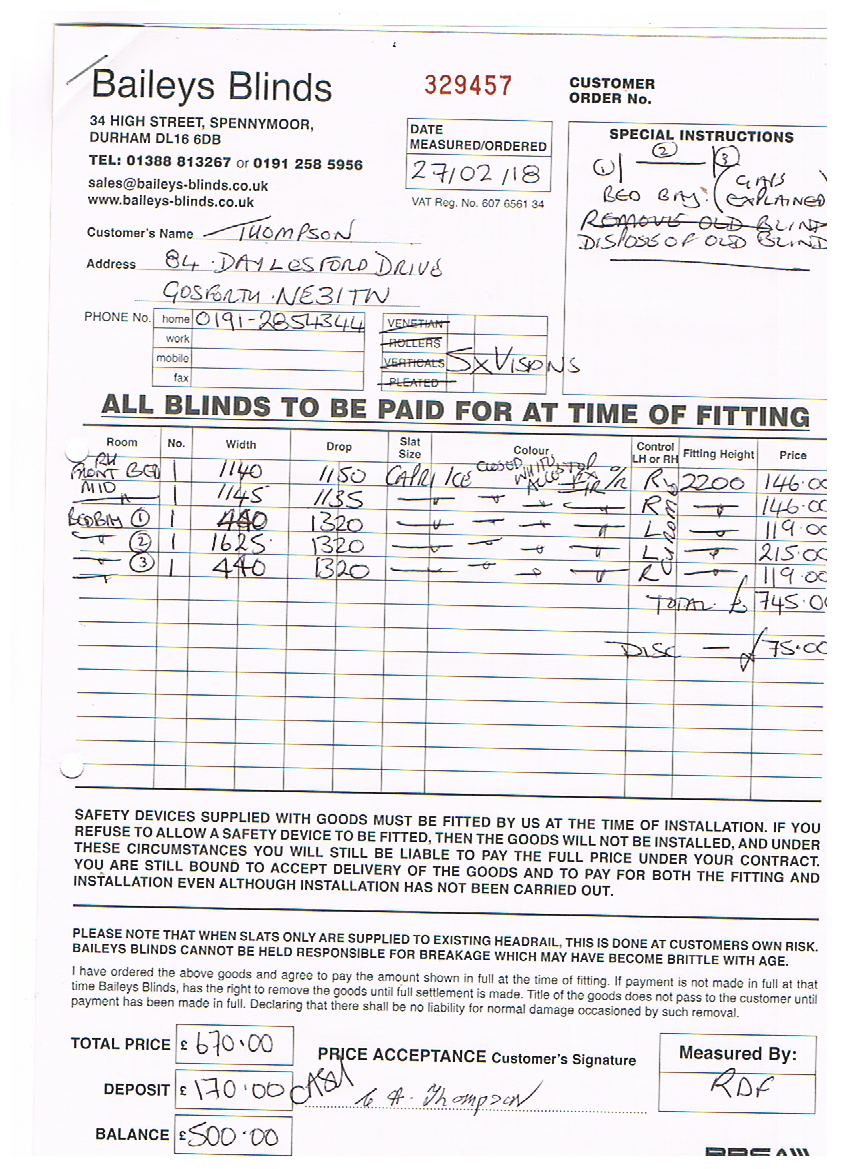 Baileys Blinds
34 HIGH STREET, SPENNYMOOR,
DURHAM DL16 6DB
TEL: 01388 813267 or 0191 258 5956
sales@baileys-blinds.co.uk
www.baileys-blinds.co.uk
329457
DATE
MEASURED/ORDERED
27/02/18
VAT Reg. No. 607 6561 34
CUSTOMER
ORDER No.
SPECIAL INSTRUCTIONS
1 2 3
BED BAY: (GAPS
EXPLAINED
REMOVE OLD BLIND
DISPOSE OF OLD BLIND
Customer's Name THOMPSON
Address 84 DAYLESFORD DRIVE
GOSFORTH NE31TW
PHONE No. home 0191-2854344
work
mobile
fax
VENETIAN
ROLLERS
VERTICALS 5xVISIONS
PLEATED
ALL BLINDS TO BE PAID FOR AT TIME OF FITTING
Room No. Width Drop Slat Size Colour Control LH or RH Fitting Height Price
RH
FRONT BED 1 1140 1150 CAPRI ICE CLOSED WHITE R 2200 146.00
MID 1 1145 1135 R 146.00
BED BAY 1 1 440 1320 L 119.00
2 1 1625 1320 L 215.00
3 1 440 1320 R 119.00
TOTAL £ 745.00
DISC — £ 75.00
SAFETY DEVICES SUPPLIED WITH GOODS MUST BE FITTED BY US AT THE TIME OF INSTALLATION. IF YOU
REFUSE TO ALLOW A SAFETY DEVICE TO BE FITTED, THEN THE GOODS WILL NOT BE INSTALLED, AND UNDER
THESE CIRCUMSTANCES YOU WILL STILL BE LIABLE TO PAY THE FULL PRICE UNDER YOUR CONTRACT.
YOU ARE STILL BOUND TO ACCEPT DELIVERY OF THE GOODS AND TO PAY FOR BOTH THE FITTING AND
INSTALLATION EVEN ALTHOUGH INSTALLATION HAS NOT BEEN CARRIED OUT.
PLEASE NOTE THAT WHEN SLATS ONLY ARE SUPPLIED TO EXISTING HEADRAIL, THIS IS DONE AT CUSTOMERS OWN RISK.
BAILEYS BLINDS CANNOT BE HELD RESPONSIBLE FOR BREAKAGE WHICH MAY HAVE BECOME BRITTLE WITH AGE.
I have ordered the above goods and agree to pay the amount shown in full at the time of fitting. If payment is not made in full at that
time Baileys Blinds, has the right to remove the goods until full settlement is made. Title of the goods does not pass to the customer until
payment has been made in full. Declaring that there shall be no liability for normal damage occasioned by such removal.
TOTAL PRICE £ 670.00
DEPOSIT £ 170.00 CASH
BALANCE £ 500.00
PRICE ACCEPTANCE Customer's Signature
A. Thompson
Measured By:
RDF